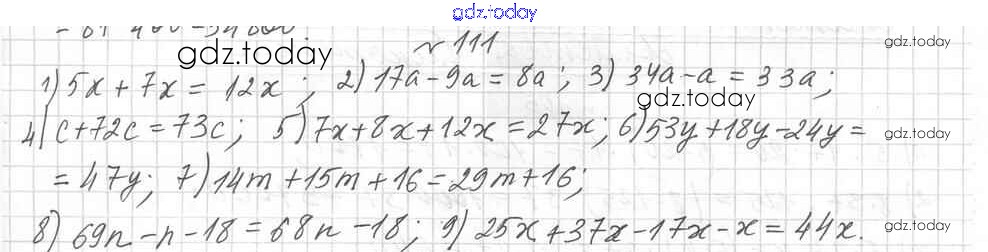 gdz.today
№ 111
gdz.today gdz.today
1) 5x + 7x = 12x ; 2) 17a - 9a = 8a ; 3) 34a - a = 33a ;
gdz.today
4) c + 72c = 73c ; 5) 7x + 8x + 12x = 27x ; 6) 53y + 18y - 24y =
gdz.today
= 47y ; 7) 14m + 15m + 16 = 29m + 16 ;
8) 69n - n - 18 = 68n - 18 ; 9) 25x + 37x - 17x - x = 44x.
gdz.today